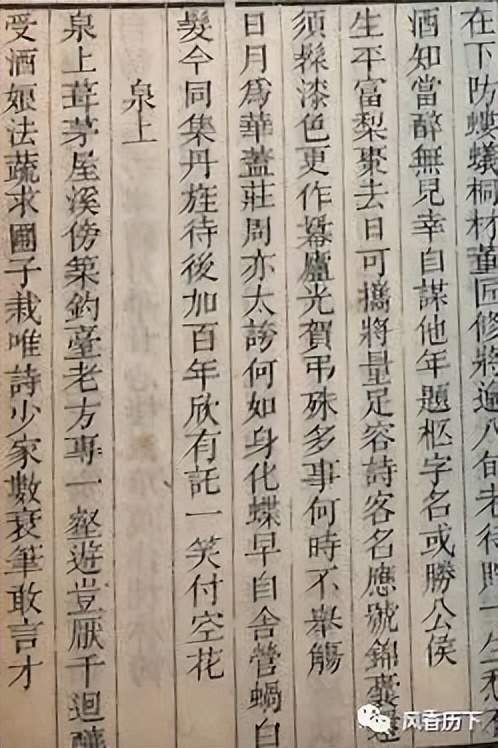 在下防螻蟻桐材董匠修將逾八旬老待貯一生愁不
酒知當醉無兒幸自謀他年題柩字名或勝公侯
生平富梨棗去日可攜將量足容詩客名應號錦囊還
須髹漆色更作廬光賀弔殊多事何時不舉觴
日月為華蓋莊周亦太誇何如身化蝶早自舍營蝸白
髮今同集丹旌待後加百年欣有託一笑付空花
泉上
泉上葺茅屋溪傍築釣臺老方專一壑遊豈厭千迴釀
受酒娘法蔬求圃子栽唯詩少家數衰筆敢言才
风香历下